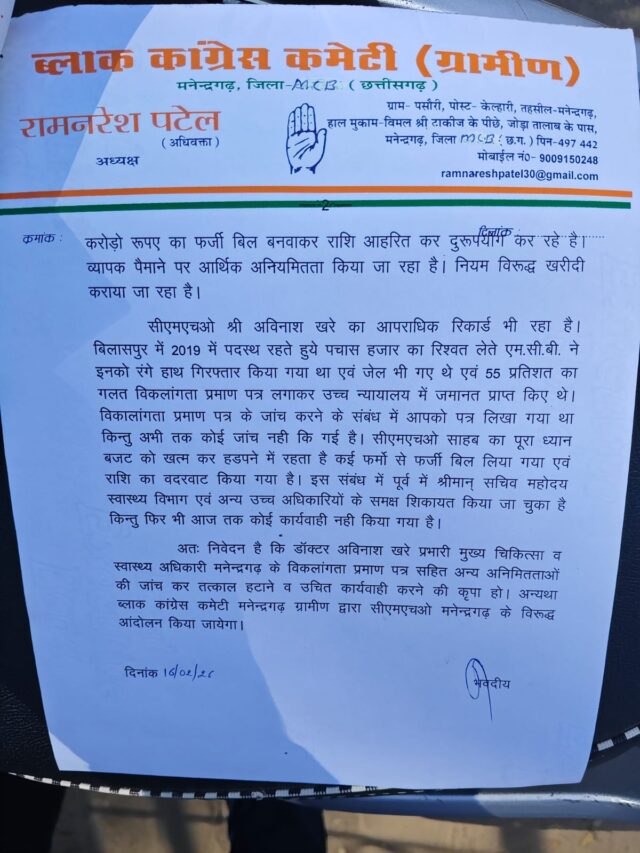 ब्लाक कांग्रेस कमेटी (ग्रामीण)
मनेन्द्रगढ़, जिला-MCB (छत्तीसगढ़)
रामनरेश पटेल
(अधिवक्ता)
अध्यक्ष
ग्राम- पसौरी, पोस्ट- केल्हारी, तहसील-मनेन्द्रगढ़,
हाल मुकाम-विमल श्री टाकीज के पीछे, जोड़ा तालाब के पास,
मनेन्द्रगढ़, जिला MCB (छ.ग.) पिन-497 442
मोबाईल नं०- 9009150248
ramnareshpatel30@gmail.com
2
क्रमांक :
दिनांक
करोड़ो रूपए का फर्जी बिल बनवाकर राशि आहरित कर दुरूपयोग कर रहे है।
व्यापक पैमाने पर आर्थिक अनियमितता किया जा रहा है। नियम विरूद्ध खरीदी
कराया जा रहा है।
सीएमएचओ श्री अविनाश खरे का आपराधिक रिकार्ड भी रहा है।
बिलासपुर में 2019 में पदस्थ रहते हुये पचास हजार का रिश्वत लेते एम.सी.बी. ने
इनको रंगे हाथ गिरफ्तार किया गया था एवं जेल भी गए थे एवं 55 प्रतिशत का
गलत विकलांगता प्रमाण पत्र लगाकर उच्च न्यायालय में जमानत प्राप्त किए थे।
विकालांगता प्रमाण पत्र के जांच करने के संबंध में आपको पत्र लिखा गया था
किन्तु अभी तक कोई जांच नही कि गई है। सीएमएचओ साहब का पूरा ध्यान
बजट को खत्म कर हडपने में रहता है कई फर्मो से फर्जी बिल लिया गया एवं
राशि का वदरवाट किया गया है। इस संबंध में पूर्व में श्रीमान् सचिव महोदय
स्वास्थ्य विभाग एवं अन्य उच्च अधिकारियों के समक्ष शिकायत किया जा चुका है
किन्तु फिर भी आज तक कोई कार्यवाही नही किया गया है।
अतः निवेदन है कि डॉक्टर अविनाश खरे प्रभारी मुख्य चिकित्सा व
स्वास्थ्य अधिकारी मनेन्द्रगढ़ के विकलांगता प्रमाण पत्र सहित अन्य अनिमितताओं
की जांच कर तत्काल हटाने व उचित कार्यवाही करने की कृपा हो। अन्यथा
ब्लाक कांग्रेस कमेटी मनेन्द्रगढ़ ग्रामीण द्वारा सीएमएचओ मनेन्द्रगढ़ के विरूद्ध
आंदोलन किया जायेगा।
दिनांक 16/02/26
भवदीय